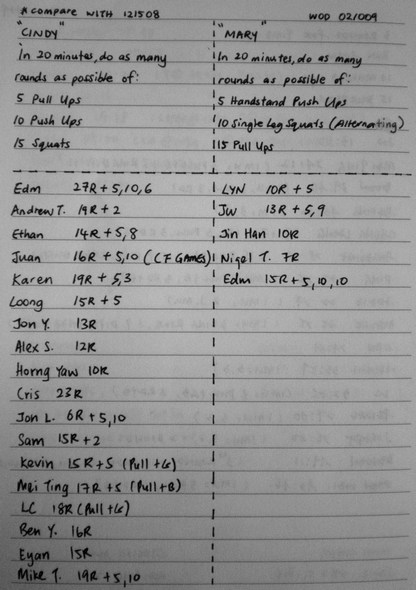 A compare WITH 121508
WOD 021009
"CINDY"
In 20 minutes, do as many
rounds as possible of:
5 Pull Ups
10 Push Ups
15 Squats
Edm 27R + 5,10,6
Andrew T. 19R + 2
Ethan 14R + 5,8
Juan 16R + 5,10 (CF GAMES)
Karen 19R + 5,3
Loong 15R + 5
Jon Y. 13R
Alex S. 12R
Horng Yaw 10R
Cris 23R
Jon L. 6R + 5,10
Sam 15R + 2
Kevin 15R + 5 (Pull + G)
Mei Ting 17R + 5 (Pull + B)
LC 18R (Pull + G)
Ben Y. 16R
Eyan 15R
Mike T. 19R + 5,10
"MARY"
In 20 minutes, do as many
rounds as possible of:
5 Handstand Push Ups
10 Single Leg Squats (Alternating)
15 Pull Ups
LYN 10R + 5
JW 13R + 5,9
Jin Han 10R
Nigel T. 7R
Edm 15R + 5,10,10